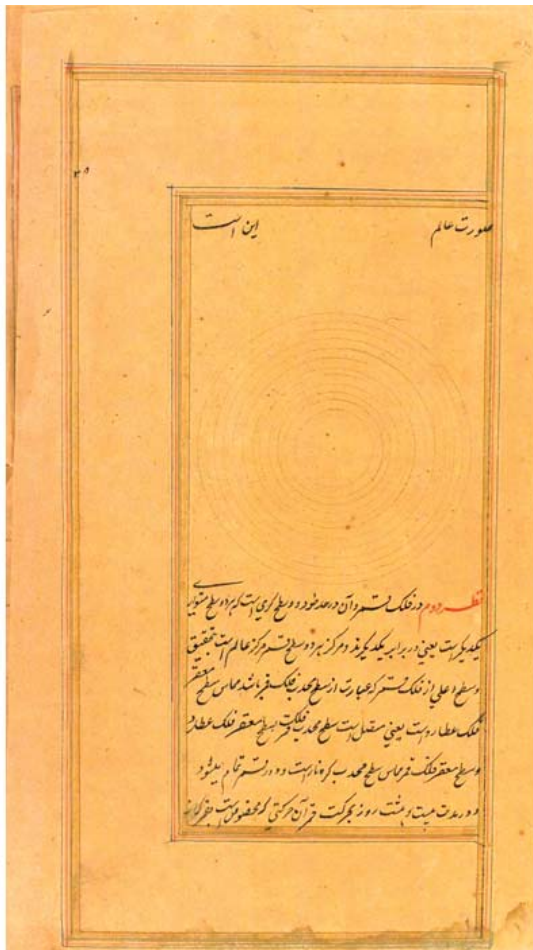 صورت عالم این است
نظر دوم در فلک قمر و آن در حد خود دو سطح کری است که هر دو سطح متوازی
یکدیگر است یعنی در برابر یکدیگرند و مرکز هر دو سطح قمر مرکز عالم است تحقیق
و سطح اعلی از فلک قمر که عبارت از سطح محدب فلک قمر باشد مماس سطح مقعر
فلک عطارد است یعنی متصل است سطح محدب فلک قمر بسطح مقعر فلک عطارد
و سطح مقعر فلک قمر مماس سطح محدب کره نار است و دور قمر تمام میشود
و در مدت بیست و هشت روز بحرکت قمر آن حرکتی که مخصوص است